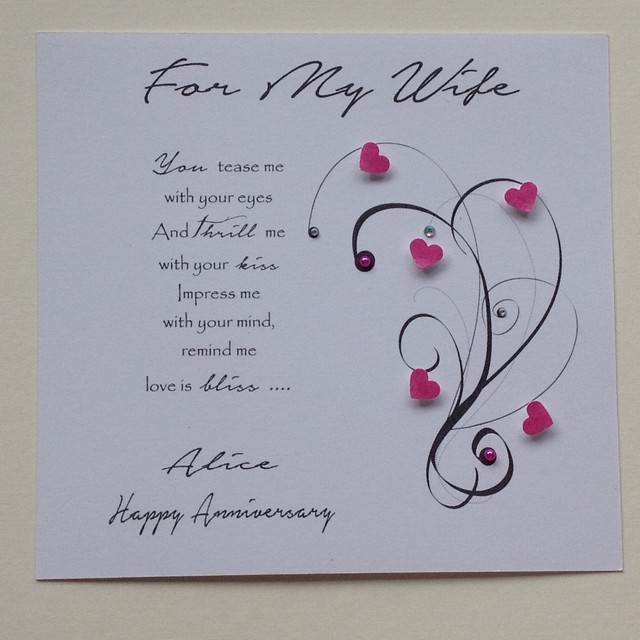 For My Wife
You tease me
with your eyes
And Thrill me
with your kiss
Impress me
with your mind,
remind me
love is bliss ....
Alice
Happy Anniversary